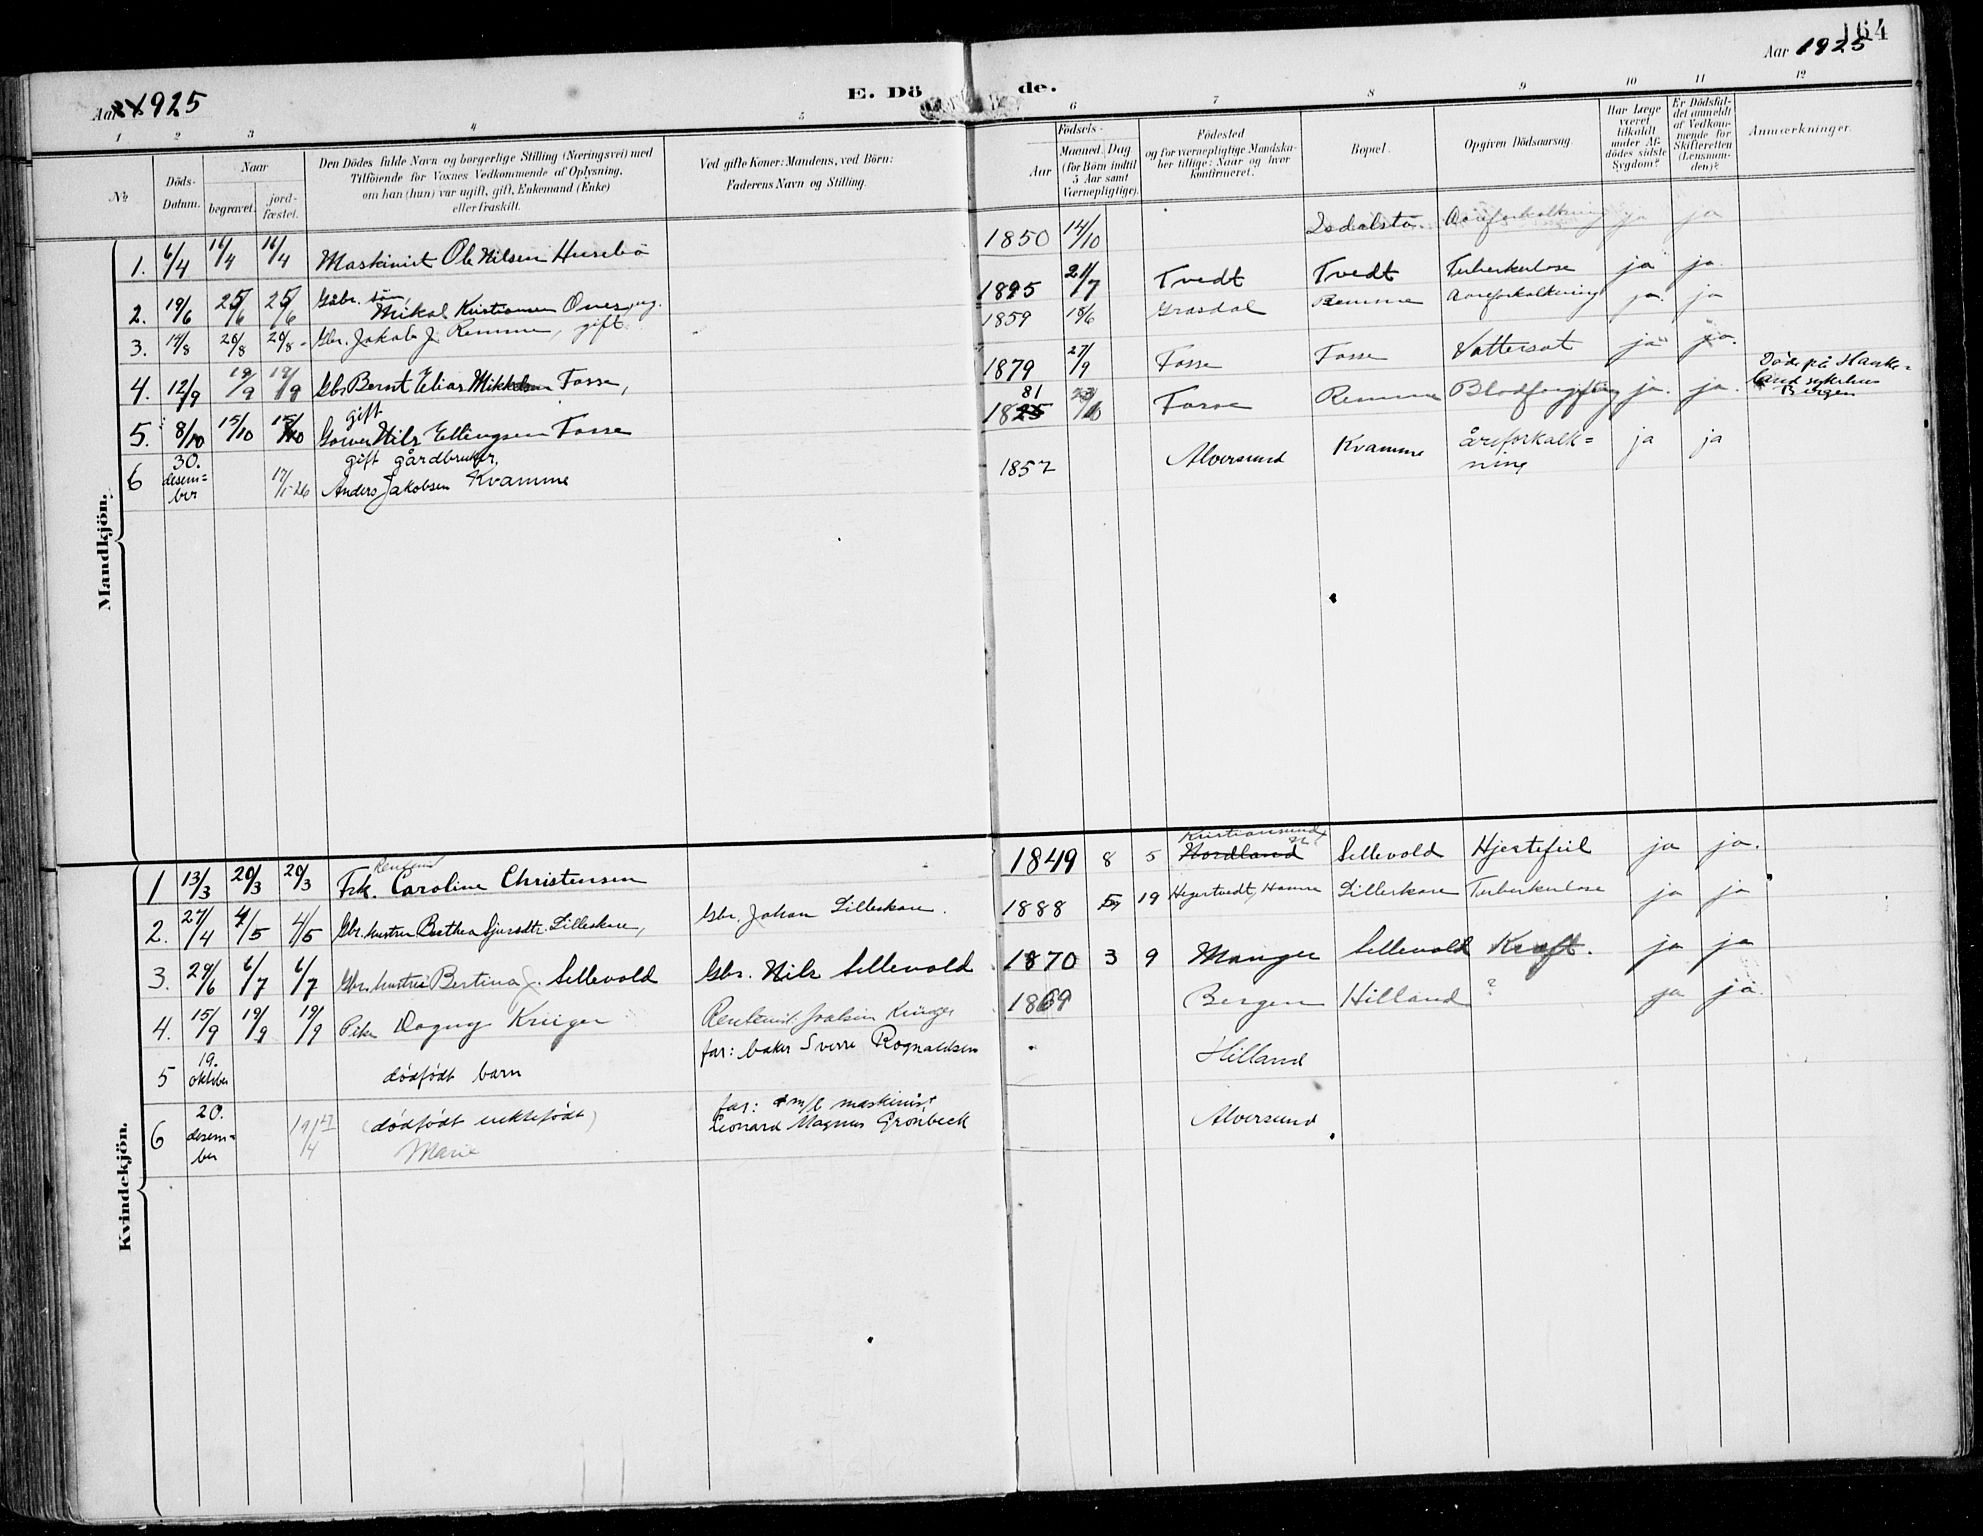 164
Aar 1925
Aar 1925
E. Dö de.
1 2 3 4 5 6 7 8 9 10 11 12
No
Döds-Datum.
Naar
begravet.
jord-fæstet.
Den Dödes fulde Navn og borgerlige Stilling (Næringsvei) med
Tilföiende for Voxnes Vedkommende af Oplysning,
om han (hun) var ugift, gift, Enkemand (Enke)
eller fraskilt.
Ved gifte Koner: Mandens, ved Börn:
Faderens Navn og Stilling.
Födsels-
Aar
Maaned. Dag
(for Börn indtil
5 Aar samt
Værnepligtige).
Födested
og for værnepligtige Mandska-
ber tillige: Naar og hvor
konfirmeret.
Bopæl.
Opgiven Dödsaarsag.
Har Læge
været
tilkaldt
under Af-
dödes sidste
Sygdom?
Er Dödsfal-
det anmeldt
af Vedkom-
mende for
Skifteretten
(Lensman-
den)?
Anmærkninger.
Mandkjön.
1. 6/4 16/4 16/4 Maskinist Ole Nilsen Husebö 1850 14/10 Isdalstø Aareforkalkning ja ja
2. 19/6 25/6 25/6 Gabr. søn Mikal Kristiansen 1895 21/7 Tvedt Tvedt Tuberkulose ja ja
3. 14/8 20/8 20/8 Gbr. Jakob J. Remme, gift. 1859 18/6 Grasdal Remme Aareforkalkning ja ja
4. 12/9 19/9 19/9 Gbr Bernt Elias Mikkelsen Fosse, gift 1879 27/9 Fosse Fosse Vattersot ja ja
5. 8/10 15/10 15/10 Nils Ellingsen Fosse 81 1825 Fosse Remme Blodforgiftning ja. ja. Död på Hauke=
land sykehus
Bergen
6 30. desem=ber 17/1-26 gift gårdbruker,
Anders Jakobsen Kvamme 1857 Alversund Kvamme årsforkalk=
ning ja ja
Kvindekjön.
1 13/3 20/3 20/3 Frk. Caroline Christensen 1849 8 5 Kristiansund N. Nordland Sellevold Hjertefeil ja ja.
2. 27/4 4/5 4/5 Gbr. hustru Berthea Sjursdtr. Lilleskare, Gbr. Johan Lilleskare. 1888 5 19 Hegertvedt, Hamre Lilleskare Tuberkulose ja ja
3. 29/6 6/7 6/7 Gbr. hustru Bertina J. Sellevold Gbr. Nils Sellevold 1870 3 9 Manger Sellevold Kræft. ja ja
4. 15/9 19/9 19/9 Pike Dagny Krüger 1869 Bergen Hilland ? ja ja
5 19. oktober dödfödt barn far: baker Sverre Rognaldsen Hilland
6 20. desem=ber (dödfödt ektefödt)
Marie far: m/b maskinist
Leonard Magnus Grönbeck Alversund